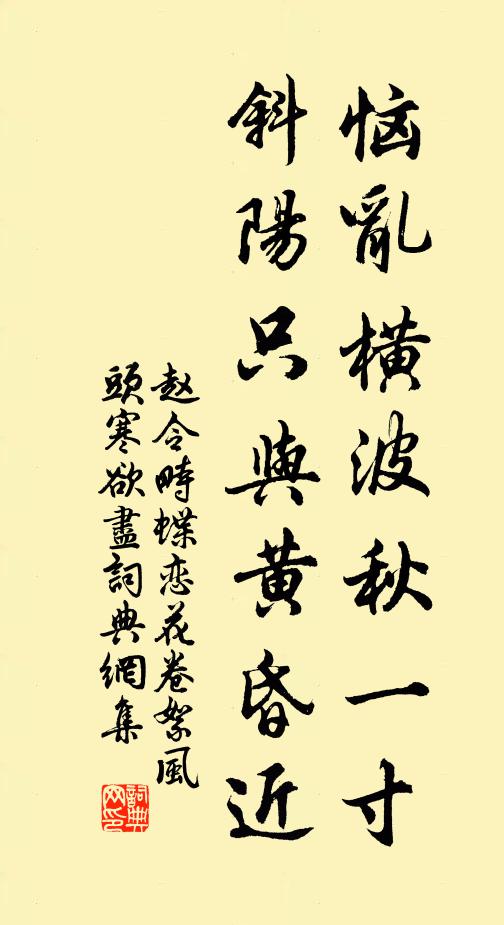 恼亂橫波秋一寸
斜陽只與黃昏近
赵令畤蝶恋花卷絮風
頭寒欲盡詞典網集
詞典
网印